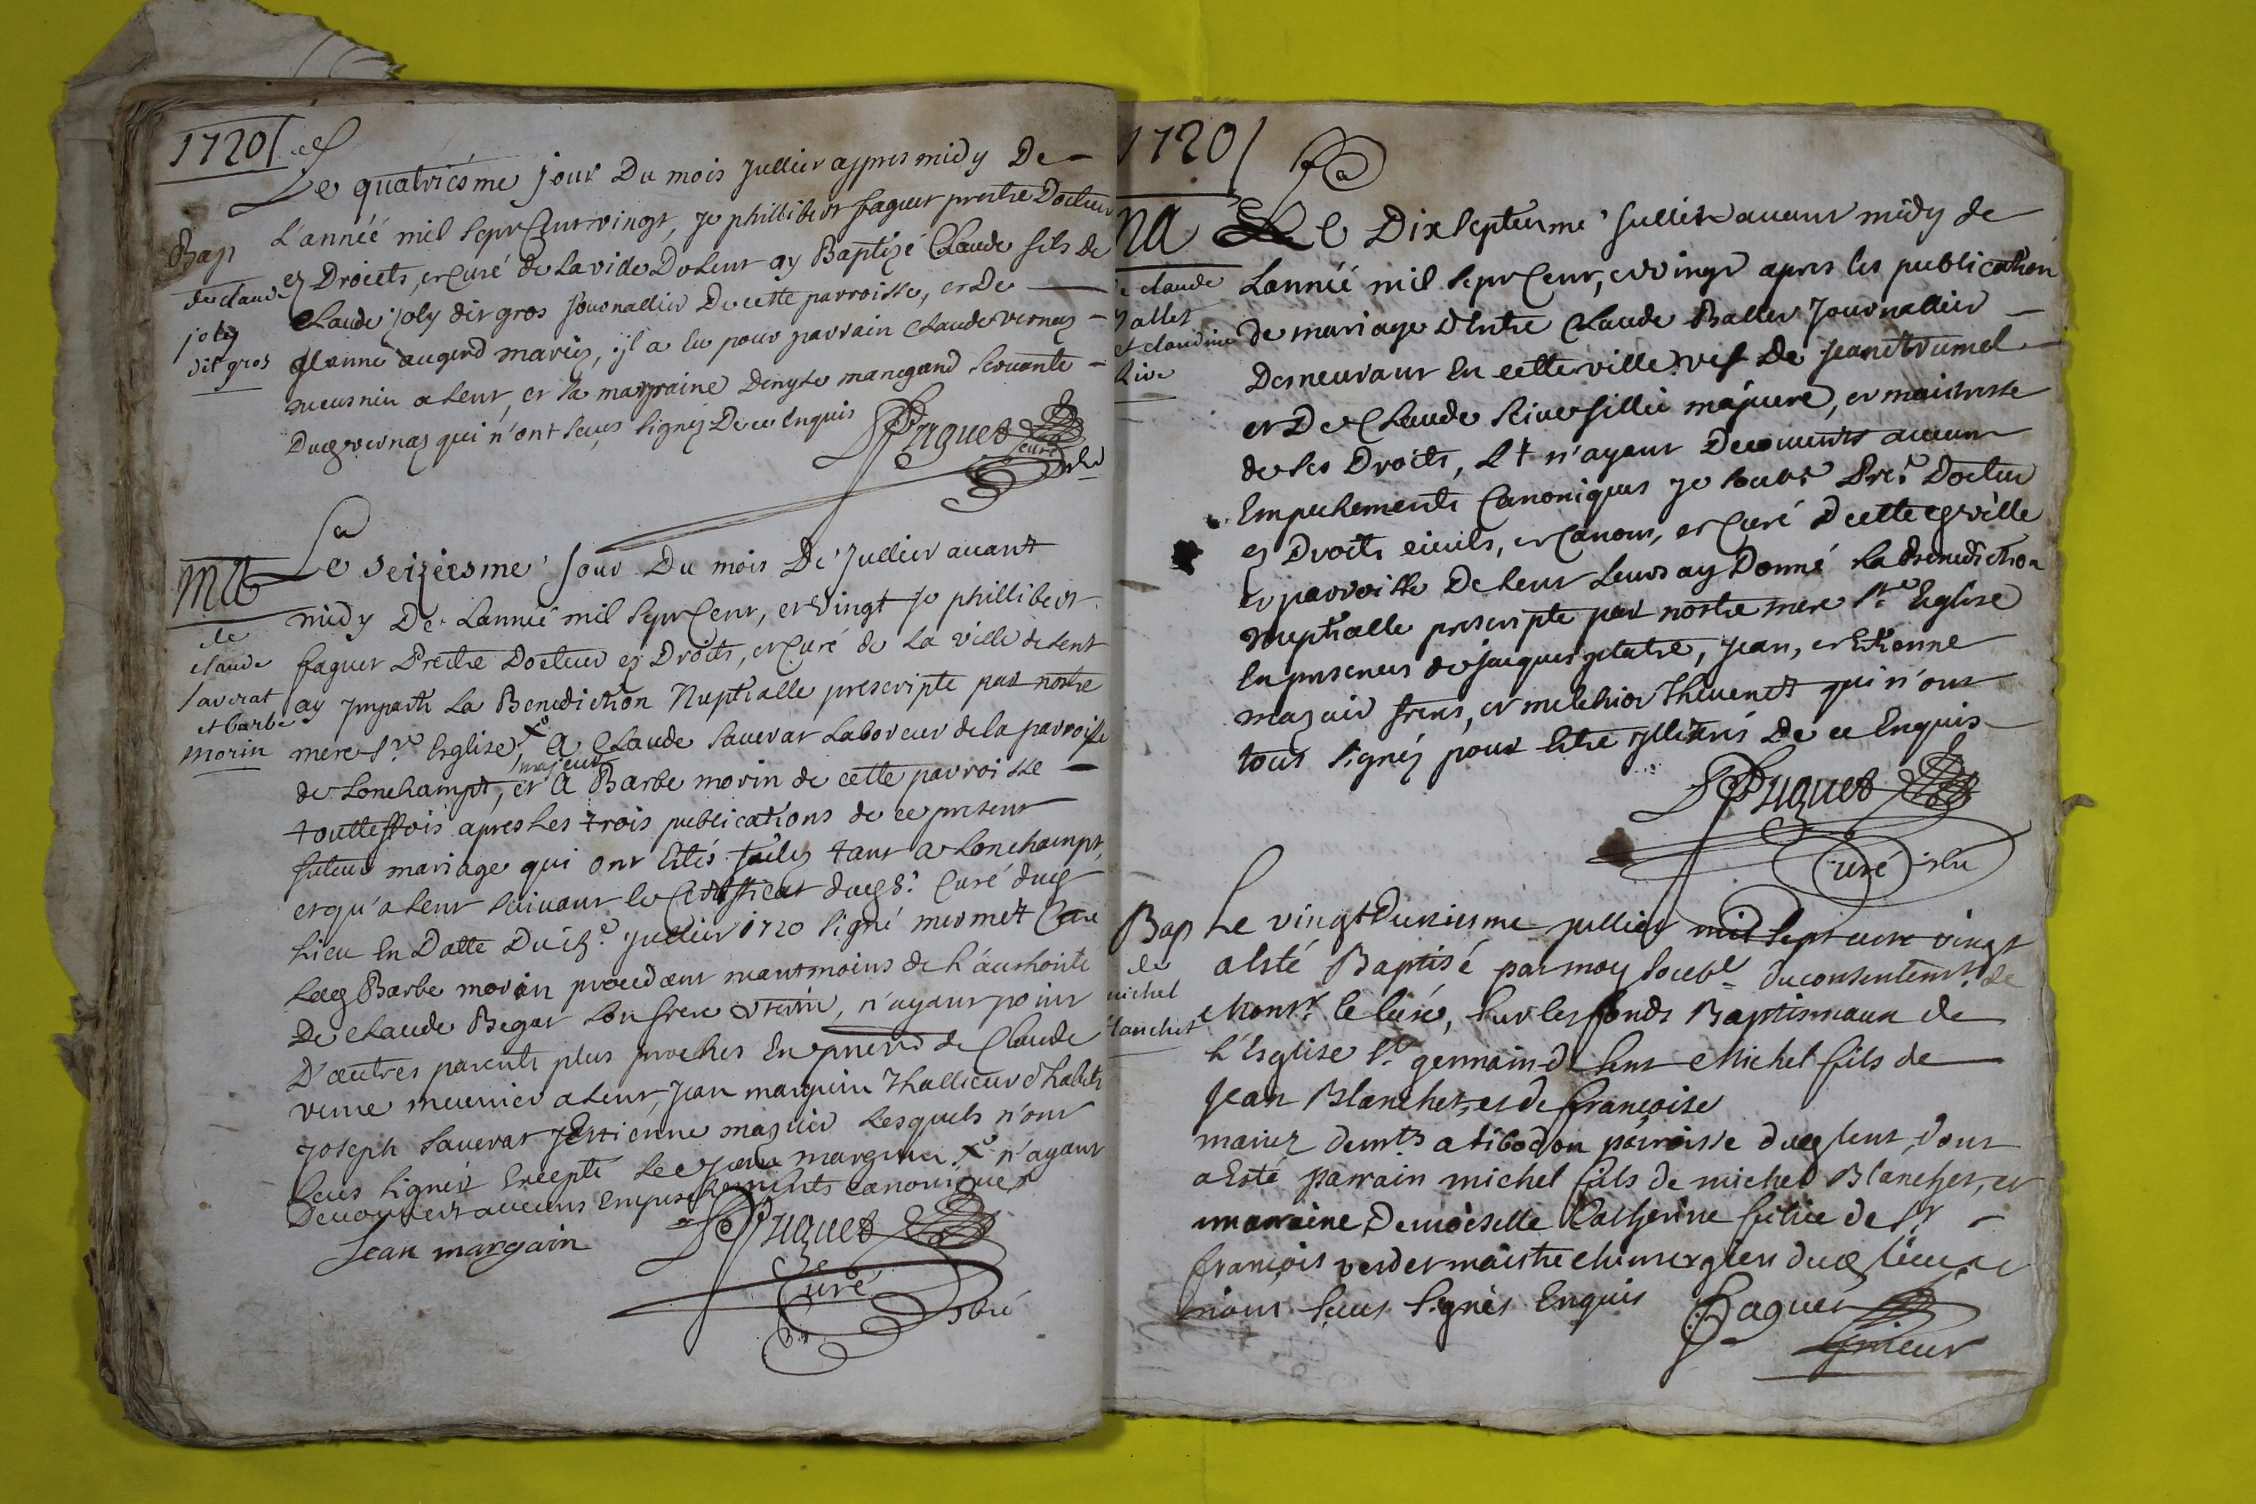 1720
Le quatriésme jour Du mois Jullier appres midy De
L'année mil sept Cent vingt, Je phillibert faguet prestre Docteur
Bap
ez Droicts, et Curé de la ville De Lent ay Baptizé Claude fils de
de claude
Claude joly dit gros Journallier De cette parroisse, et De
joly
Jeanne augerd mariez, il a Eu pour parrain Claude vernaz
dit gros
meusnier a Lent, et sa marraine Denyse manegand servante
Dueg vernaz qui n'ont sceus signéz De ce Enquis
PFaguet
Curé
Le Seiziesme Jour Du mois De Jullier avant
Ma
midy De Lannée mil sept Cent, et Vingt Je phillibert
de
faguet Prestre Docteur ez Droits, et Curé de La ville de Lent
claude
ay Imparti La Benediction Nuptialle prescripte par nostre
saverat
et barbe
mere Ste Esglise, A Claude Saverat Laboureur de la parroisse
morin
majeur
de Lonchampt, et A Barbe morin de cette parroisse
touttesfois apres les trois publications de ce present
futeur mariage qui ont Estés faites tant a Lonchampt,
et qu'a Lent suivant le Certifficat dueg Sr. Curé dueg
Lieu En Datte Du Jullier 1720 signé mermet Curé
Laeg Barbe morin procedant neantmoins de L'authorité
De Claude Begat son frere uterin, n'ayant point
D'autres parents plus proches En presence de Claude
verne meunier a Lent, Jean marguin Thallieur d'habits
Joseph Saverat Estienne mazuir Lesquels n'ont
sceus signér Excepté Le Jean marguin. n'ayant
Decouvert aucuns Empeschements canoniques
Jean margain
PFaguet
Curé
1720
Le Dix septiesme Jullier avant midy de
Ma
Lannée mil sept Cent, et vingt apres les publications
de claude
Ballet
de mariage D'Entre Claude Ballet Journallier
et claudine
Demeurant En cette ville vef De Jeane trumel
Rive
et De Claude Rive fillie majeure, et maistresse
de ses Droits, Et n'ayant Decouverts aucuns
Empechements Canoniques Je soubs. Pre. Docteur
ez Droits civils, et Canons, et Curé D cette eg ville
et parroisse De Lent Leurs ay Donné La Benediction
Nuptialle prescripte par nostre mere Ste Eglise
En presence de Jacques platre, Jean, et Etienne
mazuir freres, et melchior Thevenet qui n'ont
tous signéz pour Estre Illitérés De ce Enquis
PFaguet
Curé
Bap
Le vingt Deuxiesme Jullier mil sept cent vingt
de
a Esté Baptisé par moy soubs. du consentemt. de
michel
Monsr. le Curé, sur les fonds Baptismaux de
blanchet
L'Esglise St. germain de Lent Michel fils de
Jean Blanchet, et de françoise
mariez demts a tibodon parroisse dueg Lent, dont
a Esté parrain michel fils de michel Blanchet, et
marraine Demoiselle Catherine fillie de Sr
françois verdet maistre chirurgien dueg lieu
n'ont sceus signés Enquis
Faguet